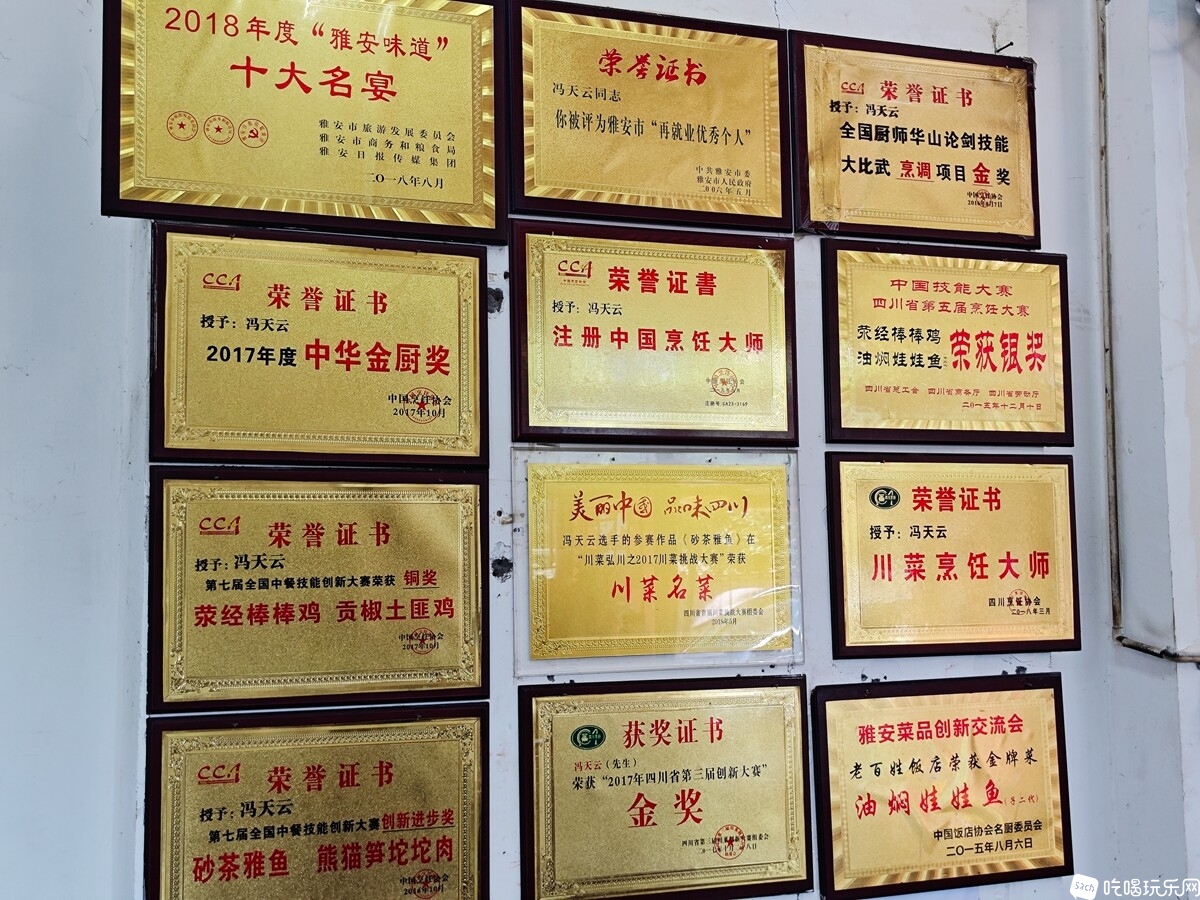 2018年度“雅安味道”
十大名宴
雅安市旅游发展委员会
雅安市商务和粮食局
雅安日报传媒集团
二〇一八年八月
荣誉证书
冯天云同志
你被评为雅安市“再就业优秀个人”
中共雅安市委
雅安市人民政府
二00六年五月
CCA 荣誉证书
授予：冯天云
全国厨师华山论剑技能
大比武 烹调项目金奖
中国烹饪协会
CCA
荣誉证书
授予：冯天云
2017年度 中华金厨奖
中国烹饪协会
2017年10月
CCA
荣誉证書
授予：冯天云
注册中国烹饪大师
中国烹饪协会
中国技能大赛
四川省第五届烹饪大赛
荥经棒棒鸡
油焖娃娃鱼
荣获银奖
四川省总工会 四川省商务厅 四川省劳动厅
二〇一五年十二月十日
CCA
荣誉证书
授予：冯天云
第七届全国中餐技能创新大赛荣获 铜奖
荥经棒棒鸡 贡椒土匪鸡
中国烹饪协会
2017年10月
美丽中國 品味四川
冯天云选手的参赛作品《砂茶雅鱼》在
“川菜弘川之2017川菜挑战大赛”荣获
川菜名菜
2018年5月
荣誉证书
授予：冯天云
川菜烹饪大师
四川烹饪协会
二〇一八年三月
CCA
荣誉证书
授予：冯天云
第七届全国中餐技能创新大赛创新进步奖
砂茶雅鱼 熊猫笋坨坨肉
中国烹饪协会
获奖证书
冯天云（先生）
荣获“2017年四川省第三届创新大赛”
金奖
雅安菜品创新交流会
老百姓饭店荣获金牌菜
油焖娃娃鱼(子二代)
中国饭店协会名厨委员会
二〇一五年八月六日
吃喝玩乐网